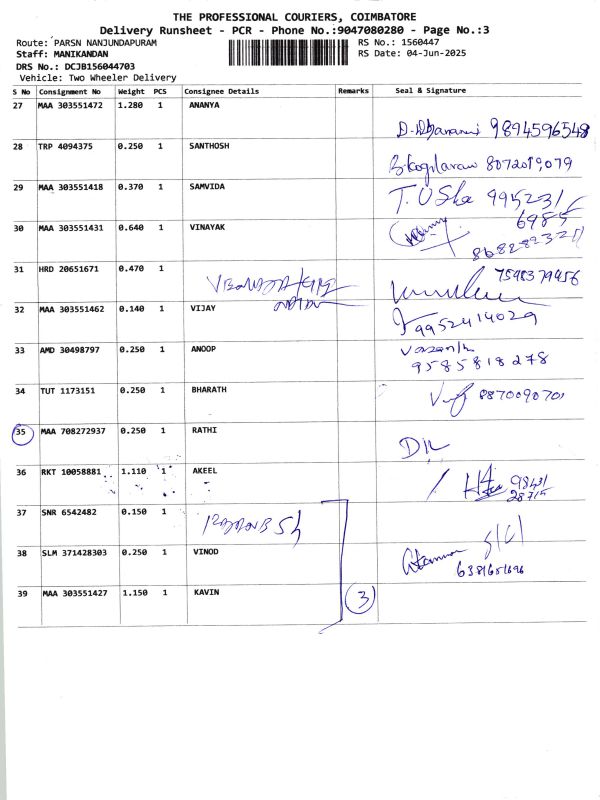 THE PROFESSIONAL COURIERS, COIMBATORE
Delivery Runsheet - PCR - Phone No.:9047080280 - Page No.:3
Route: PARSN NANJUNDAPURAM
RS No.: 1560447
Staff: MANIKANDAN
RS Date: 04-Jun-2025
DRS No.: DCJB156044703
Vehicle: Two Wheeler Delivery
S No Consignment No Weight PCS Consignee Details Remarks Seal & Signature
27 MAA 303551472 1.280 1 ANANYA
9894596548
28 TRP 4094375 0.250 1 SANTHOSH
8072019079
29 MAA 303551418 0.370 1 SAMVIDA
T. USha 995231
6985
30 MAA 303551431 0.640 1 VINAYAK
31 HRD 20651671 0.470 1
7598379456
32 MAA 303551462 0.140 1 VIJAY
9952414029
33 AMD 30498797 0.250 1 ANOOP
9585818278
34 TUT 1173151 0.250 1 BHARATH
8870090701
35 MAA 708272937 0.250 1 RATHI
36 RKT 10058881 1.110 1 AKEEL
98431
28715
37 SNR 6542482 0.150 1
38 SLM 371428303 0.250 1 VINOD
6381651696
39 MAA 303551427 1.150 1 KAVIN
3